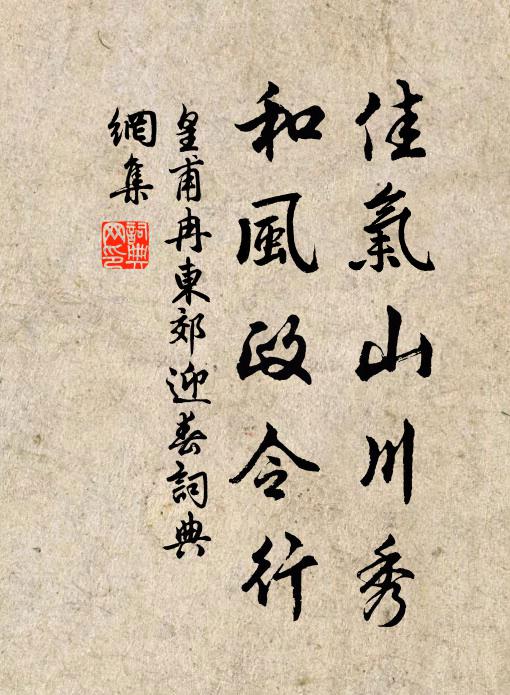 佳氣山川秀
和風政令行
皇甫冉東郊迎春詞典
網集
詞典
网印